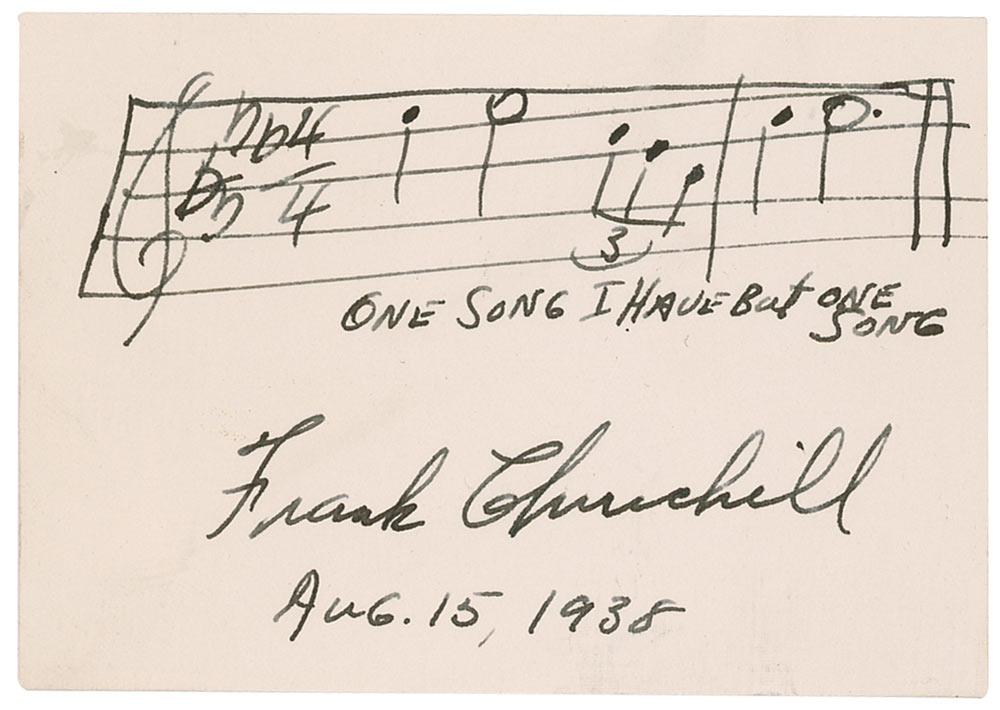 4
4
3
ONE SONG I HAVE But ONE
SONG
Frank Churchill
Aug. 15, 1938